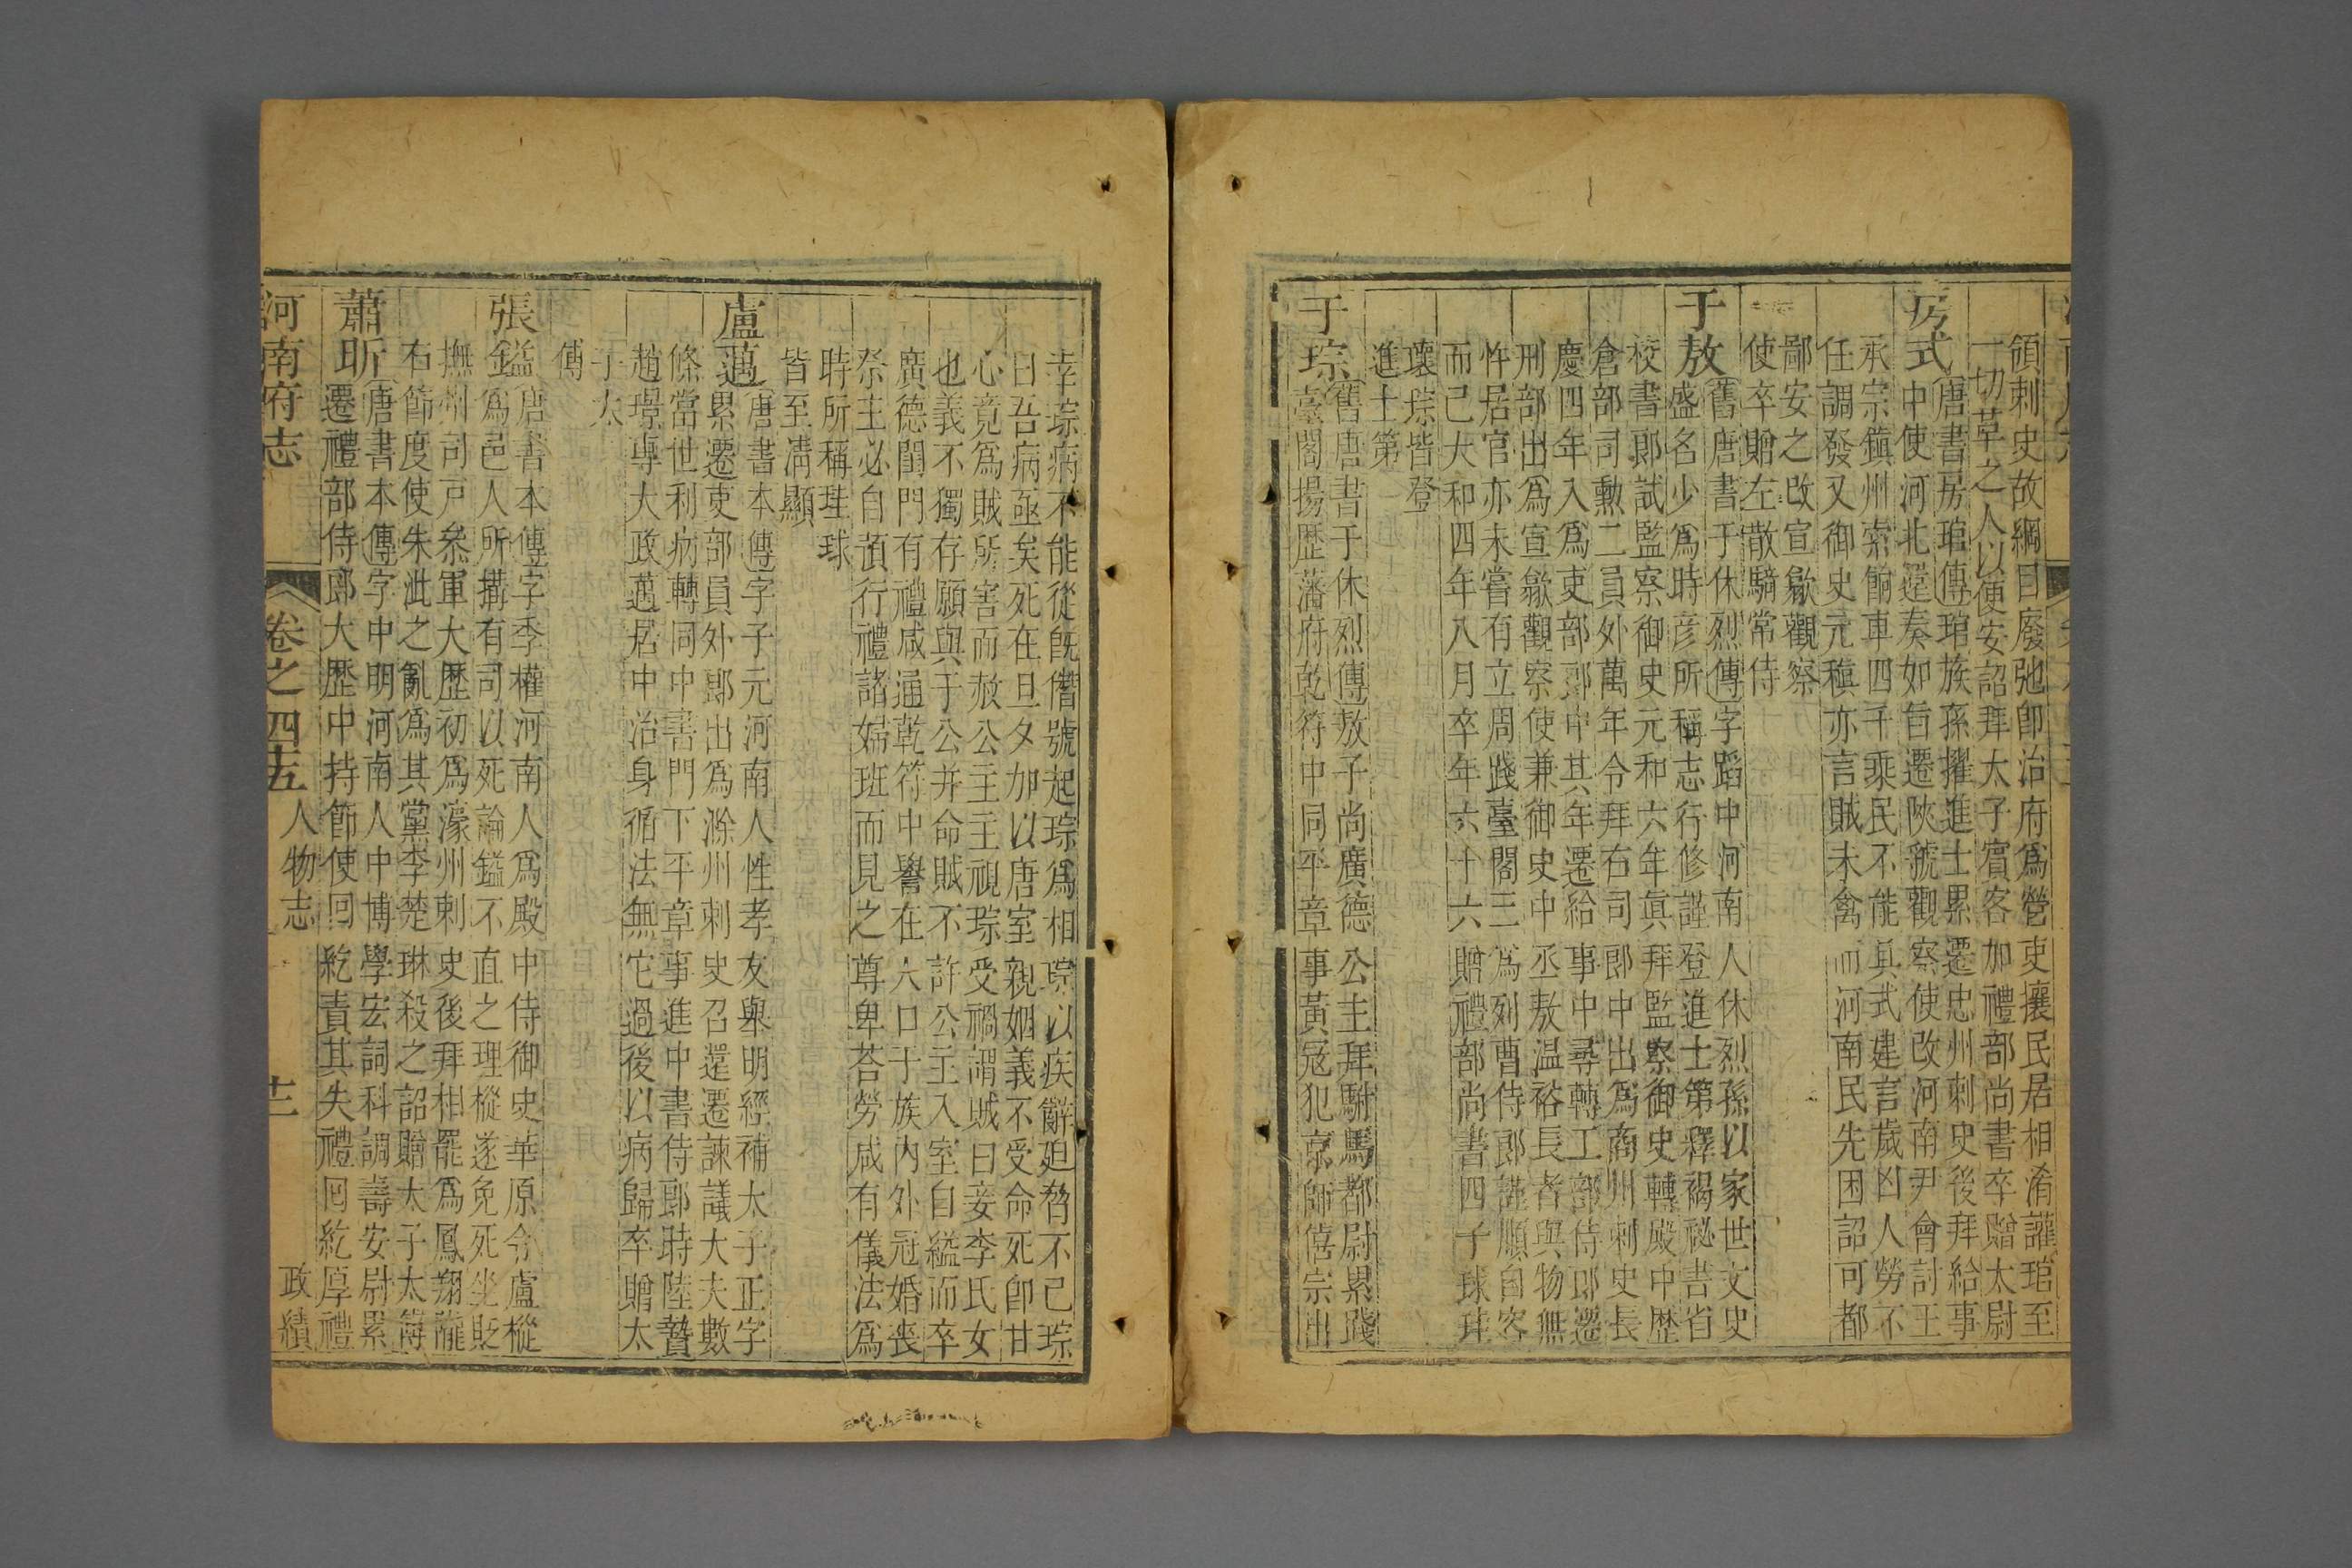 領刺史故綱目廢弛卽治府爲營吏攘民居相淆讙琯至
一切革之人以便安詔拜太子賓客加禮部尚書卒贈太尉
房式唐書房琯傳琯族孫擢進士累遷忠州刺史後拜給事
中使河北還奏如旨遷陜虢觀察使改河南尹會討王
承宗鎭州索餉車四千乘民不能具式建言歲凶人勞不
任調發又御史元稹亦言賊未禽而河南民先困詔可都
鄙安之改宣歙觀察
使卒贈左散騎常侍
于敖舊唐書于休烈傳字蹈中河南人休烈孫以家世文史
盛名少爲時彦所稱志行修謹登進士第釋褐祕書省
校書郎試監察御史元和六年眞拜監察御史轉殿中歷
倉部司勲二員外萬年令拜右司郎中出爲商州刺史長
慶四年入爲吏部郎中其年遷給事中尋轉工部侍郎遷
刑部出爲宣歙觀察使兼御史中丞敖温裕長者與物無
忤居官亦未嘗有立周踐臺閣三爲列曹侍郎謹順自容
而已大和四年八月卒年六十六贈禮部尚書四子球珪
瓌琮皆登
進士第
于琮舊唐書于休烈傳敖子尚廣德公主拜駙馬都尉累踐
臺閣揚歷藩府乾符中同平章事黃冦犯京師僖宗出
幸琮病不能從旣僭號起琮爲相琮以疾辭廹脅不已琮
曰吾病亟矣死在旦夕加以唐室親姻義不受命死卽甘
心竟爲賊所害而赦公主主視琮受禍謂賊曰妾李氏女
也義不獨存願與于公并命賊不許公主入室自縊而卒
廣德閨門有禮咸通乾符中譽在人口于族內外冠婚喪
祭主必自預行禮諸婦班而見之尊卑荅勞咸有儀法爲
時所稱珪球
皆至淸顯
盧邁唐書本傳字子元河南人性孝友舉明經補太子正字
累遷吏部員外郎出爲滁州刺史召還遷諫議大夫數
條當世利病轉同中書門下平章事進中書侍郎時陸贄
趙璟專大政邁居中治身循法無它過後以病歸卒贈太
子太
傅
張鎰唐書本傳字季權河南人爲殿中侍御史華原令盧樅
爲邑人所搆有司以死論鎰不直之理樅遂免死坐貶
撫州司戸叅軍大歷初爲濠州刺史後拜相罷爲鳳翔隴
右節度使朱泚之亂爲其黨李楚琳殺之詔贈太子太傅
蕭昕唐書本傳字中明河南人中博學宏詞科調壽安尉累
遷禮部侍郎大歷中持節使回紇責其失禮回紇厚禮
河南府志
卷之四五
人物志
政績